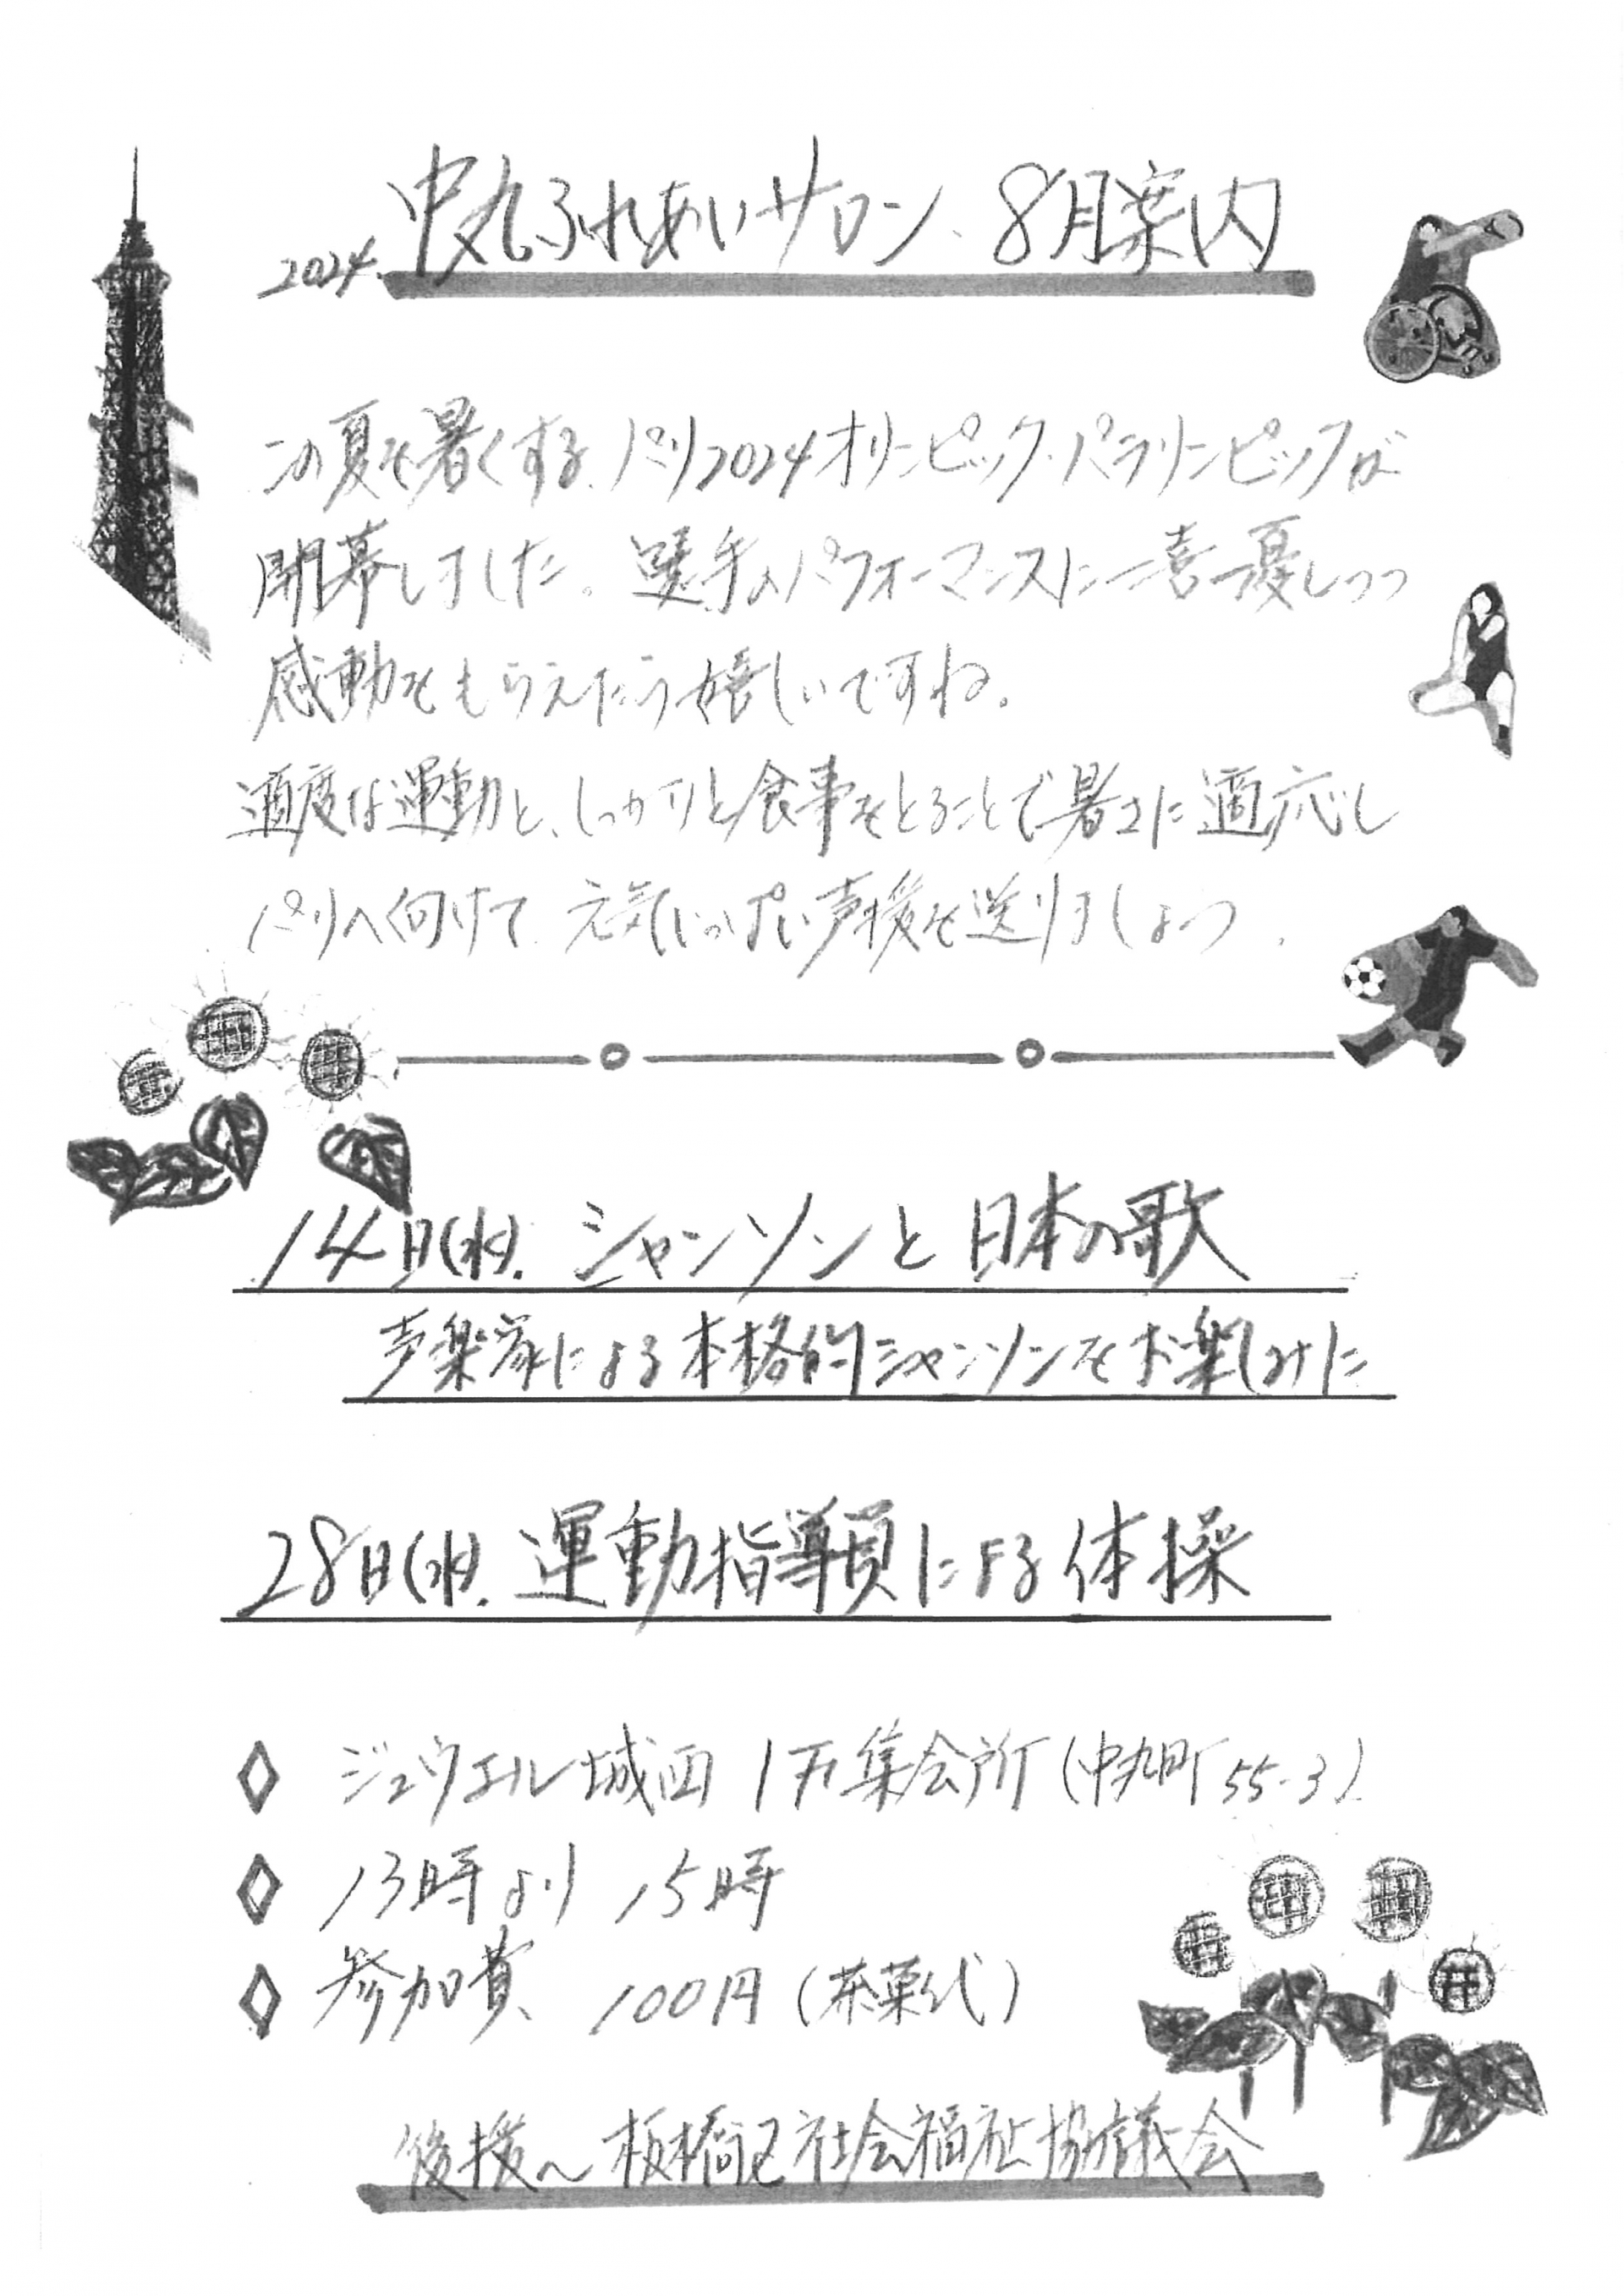 2024. 中丸ふれあいサロン、8月案内
この夏を暑くする、パリ2024オリンピック・パラリンピックが
開幕しました。選手のパフォーマンスに一喜一憂しつつ
感動をもらえたら嬉しいですね。
適度な運動と、しっかりと食事をとることで暑さに適応し
パリへ向けて、元気いっぱい声援を送りましょう。
14日(水)、シャンソンと日本の歌
声楽家による本格的シャンソンをお楽しみに
28日(水)、運動指導員による体操
◇ ジェウエル城西 1F集会所(中丸町55-3)
◇ 13時より 15時
◇ 参加費、100円(茶菓代)
後援〜板橋区社会福祉協議会